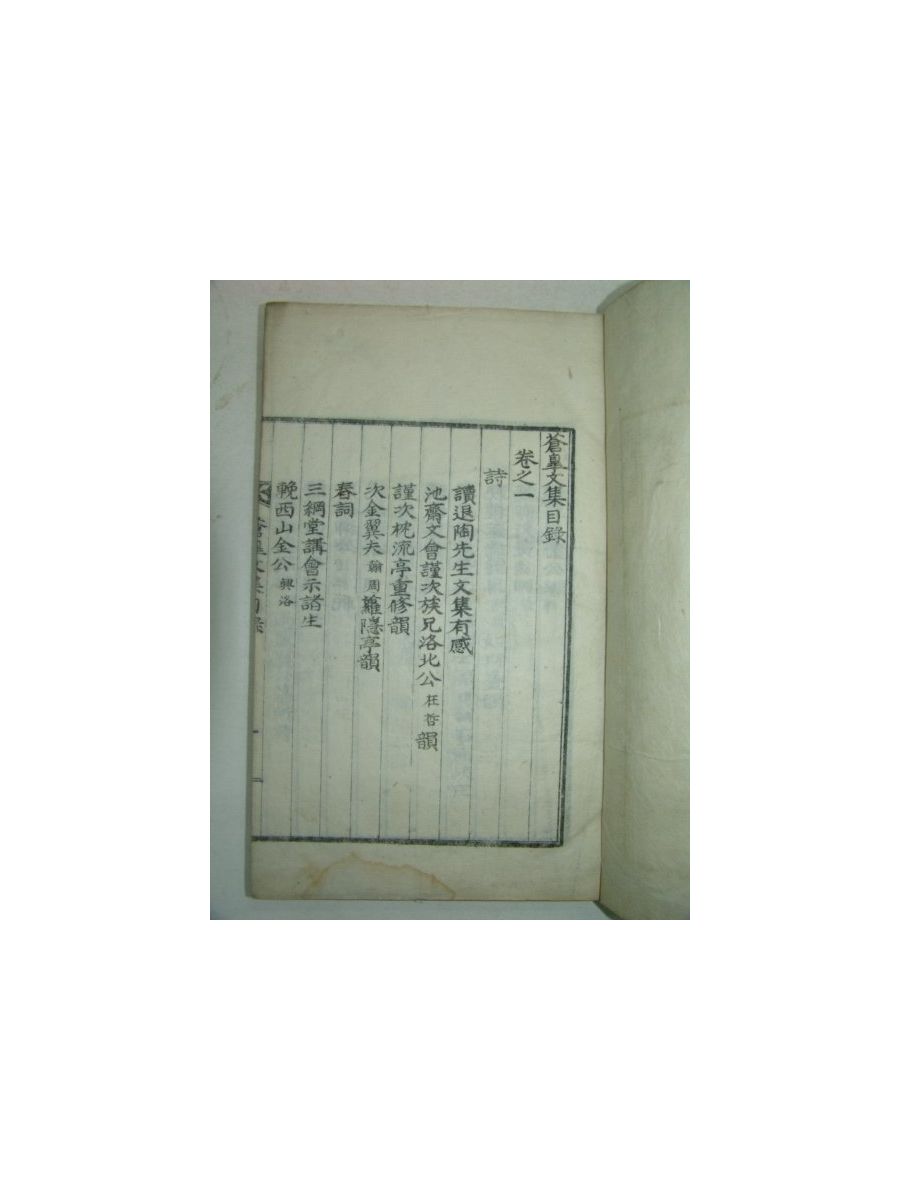 蒼皐文集目錄
卷之一
詩
讀退陶先生文集有感
池齋文會謹次族兄洛北公 枉哲 韻
謹次枕流亭重修韻
次金翼夫 翰周 蘿隱亭韻
春詞
三綱堂講會示諸生
輓西山金公 興洛
蒼皐文集目錄